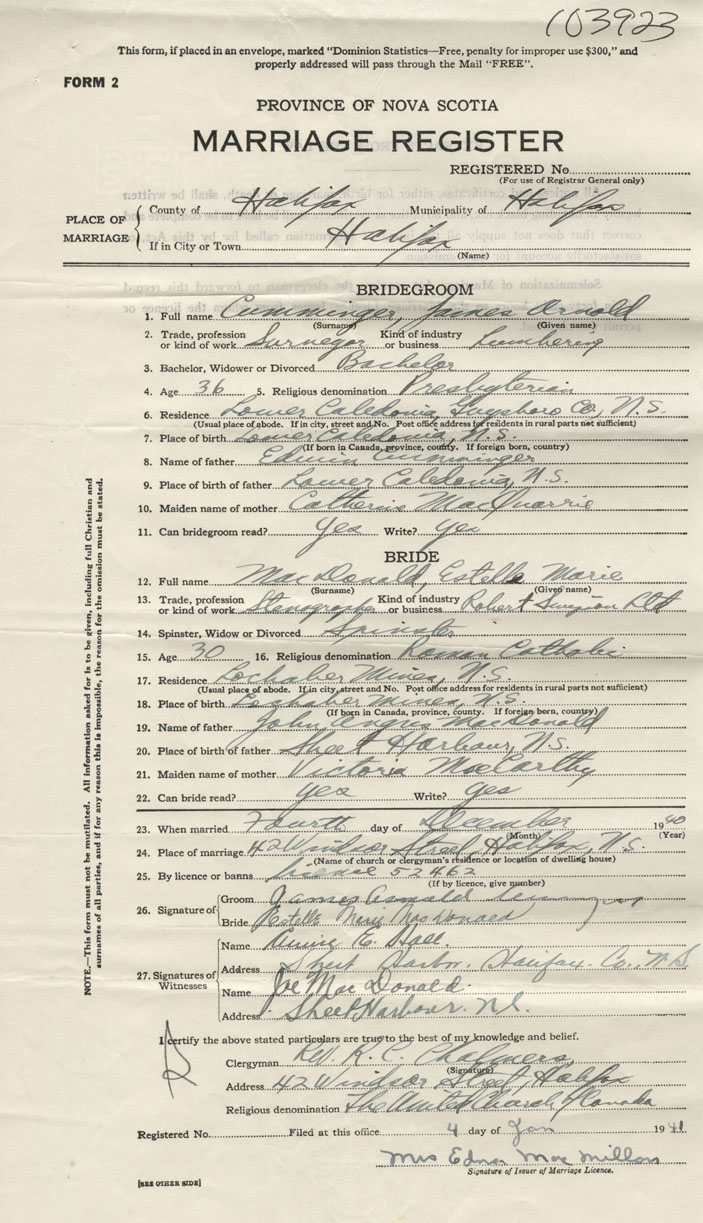 103923
This form, if placed in an envelope, marked "Dominion Statistics—Free, penalty for improper use $300," and
properly addressed will pass through the Mail "FREE".
FORM 2
PROVINCE OF NOVA SCOTIA
MARRIAGE REGISTER
REGISTERED No.
(For use of Registrar General only)
PLACE OF MARRIAGE
County of Halifax Municipality of Halifax
If in City or Town Halifax
(Name)
BRIDEGROOM
1. Full name Cumminger, James Arnold
(Surname) (Given name)
2. Trade, profession or kind of work Surveyor Kind of industry or business Lumbering
3. Bachelor, Widower or Divorced Bachelor
4. Age 36 5. Religious denomination Presbyterian
6. Residence Lower Caledonia, Guysboro Co., N.S.
(Usual place of abode. If in city, street and No. Post office address for residents in rural parts not sufficient)
7. Place of birth Lower Caledonia, N.S.
(If born in Canada, province, county. If foreign born, country)
8. Name of father Edwin Cumminger
9. Place of birth of father Lower Caledonia, N.S.
10. Maiden name of mother Catherine MacQuarrie
11. Can bridegroom read? Yes Write? Yes
BRIDE
12. Full name MacDonald, Estelle Marie
(Surname) (Given name)
13. Trade, profession or kind of work Stenographer Kind of industry or business Robert Simpson Ltd
14. Spinster, Widow or Divorced Spinster
15. Age 30 16. Religious denomination Roman Catholic
17. Residence Lochaber Mines, N.S.
(Usual place of abode. If in city, street and No. Post office address for residents in rural parts not sufficient)
18. Place of birth Lochaber Mines, N.S.
(If born in Canada, province, county. If foreign born, country)
19. Name of father John Angus MacDonald
20. Place of birth of father Sheet Harbour, N.S.
21. Maiden name of mother Victoria MacCarthy
22. Can bride read? Yes Write? Yes
23. When married Fourth day of December 1940
(Month) (Year)
24. Place of marriage 42 Windsor Street, Halifax, N.S.
(Name of church or clergyman's residence or location of dwelling house)
25. By licence or banns licence 52462
(If by licence, give number)
26. Signature of
Groom James Arnold Cumminger
Bride Estelle Marie MacDonald
27. Signatures of Witnesses
Name E. Hall.
Address Sheet Harbor. Halifax. Co., N.S
Name Joe MacDonald.
Address Sheet Harbour. N.S.
I certify the above stated particulars are true to the best of my knowledge and belief.
Clergyman Rev. R. C. Chalmers,
(Signature)
Address 42 Windsor Street, Halifax
Religious denomination The United Church of Canada
Registered No. Filed at this office 4 day of Jan 1941
Mrs Edna MacMillan
Signature of Issuer of Marriage Licence.
[SEE OTHER SIDE]
NOTE.—This form must not be mutilated. All information asked for is to be given, including full Christian and
surnames of all parties, and if for any reason this is impossible, the reason for the omission must be stated.